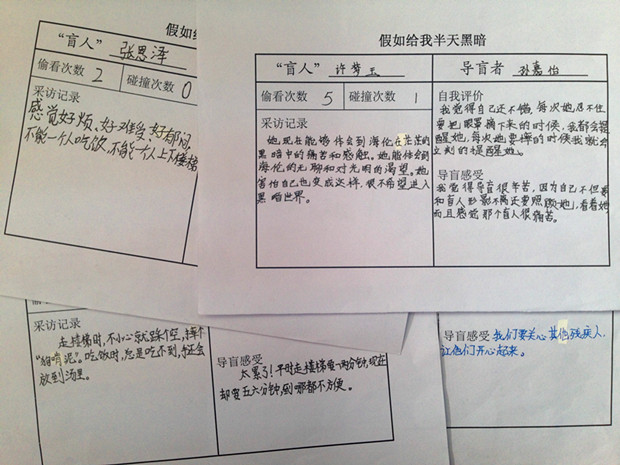 假如给
“盲人” 张恩泽
偷看次数 2 碰撞次数 0
采访记录
感觉好烦、好难受、好郁闷,
不能一个人吃饭,不能一个人上下楼梯
假如给我半天黑暗
“盲人” 许梦玉 导盲者 孙嘉怡
偷看次数 5 碰撞次数 1
采访记录
她现在能够体会到海伦在茫茫的
黑暗中的痛苦和感触。她能体会到
海伦的无聊和对光明的渴望。她
害怕自己也变成这样,很不希望进入
黑暗世界。
自我评价
我觉得自己还不错,每次她忍不住
要把眼罩摘下来的时候,我都会提
醒她,每次她要摔的时候我就会
立刻的提醒她。
导盲感受
我觉得导盲很辛苦,因为自己不但要
和盲人形影不离还要照顾她,看着她
而且感觉那个盲人很痛苦。
采访记录
走楼梯时,不小心就踩个空,摔个
“狗啃泥”。吃饭时,总是吃不到,手还会
放到汤里。
导盲感受
太累了!平时走楼梯要一两分钟,现在
却要五六分钟,到哪都不方便。
导盲感受 我们要关心其他残疾人,
让他们开心起来。